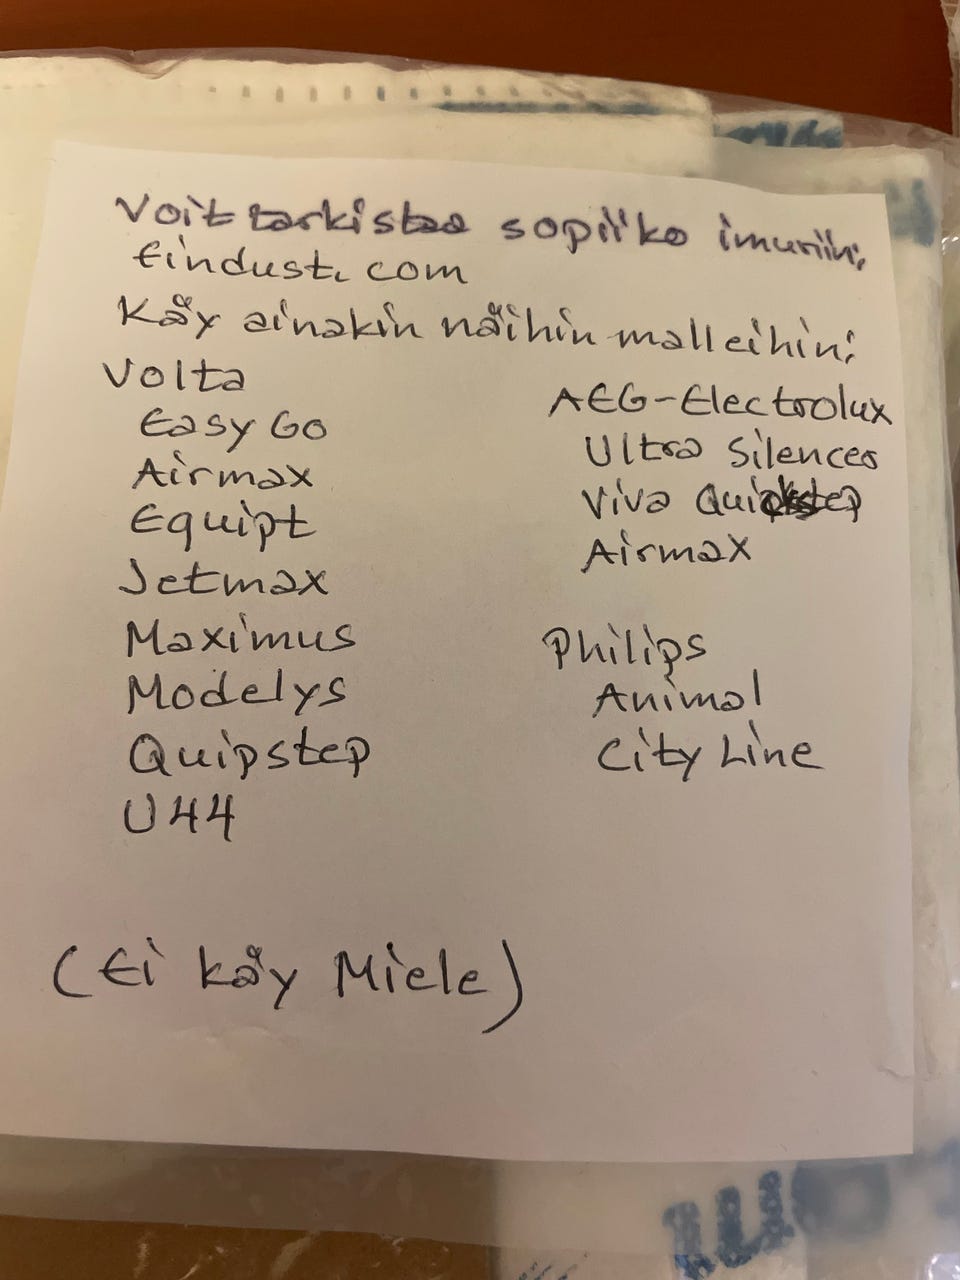 Voit tarkistaa sopiiko imuriin:
Eindust. com
Käy ainakin näihin malleihin:
Volta
Easy Go
Airmax
Equipt
Jetmax
Maximus
Modelys
Quipstep
U44
AEG-Electrolux
Ultra Silencer
Viva Quickstep
Airmax
Philips
Animal
City Line
(Ei käy Miele)